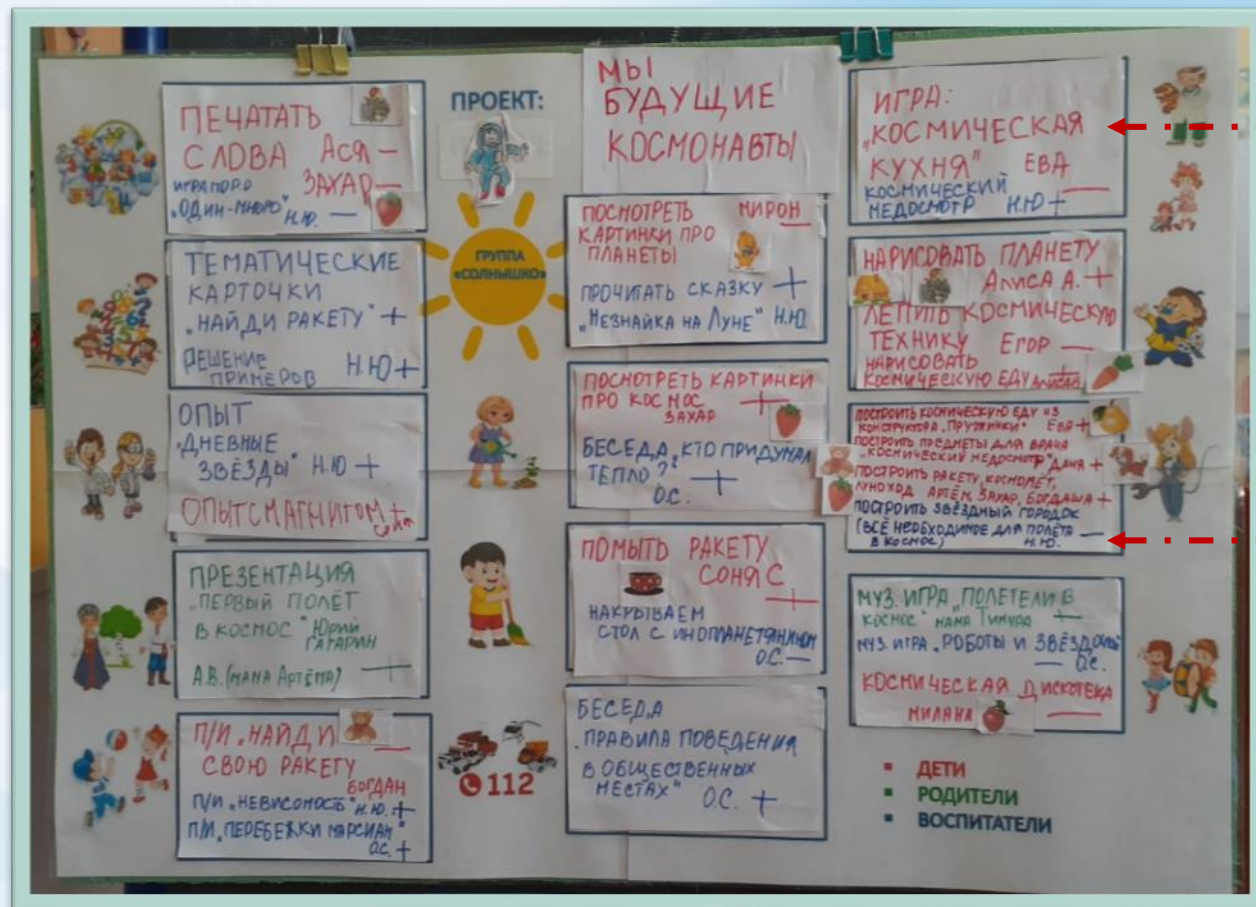 ПРОЕКТ:
МЫ
БУДУЩИЕ
КОСМОНАВТЫ
ГРУППА
«СОЛНЫШКО»
ПЕЧАТАТЬ
СЛОВА АСЯ –
ЗАХАР –
ИГРА ПО Р.О
„ОДИН-МНОГО" Н.Ю. –
ТЕМАТИЧЕСКИЕ
КАРТОЧКИ
„НАЙДИ РАКЕТУ" +
РЕШЕНИЕ
ПРИМЕРОВ Н.Ю +
ОПЫТ
„ДНЕВНЫЕ
ЗВЁЗДЫ" Н.Ю +
ОПЫТ С МАГНИТОМ +
ПРЕЗЕНТАЦИЯ
„ПЕРВЫЙ ПОЛЁТ
В КОСМОС" ЮРИЙ
ГАГАРИН
А.В. (МАМА АРТЁМА) +
П/И „НАЙДИ –
СВОЮ РАКЕТУ
БОГДАН
П/И „НЕВЕСОМОСТЬ" Н.Ю. +
П/И „ПЕРЕБЕЖКИ МАРСИАН"
О.С. +
ПОСМОТРЕТЬ МИРОН –
КАРТИНКИ ПРО
ПЛАНЕТЫ
ПРОЧИТАТЬ СКАЗКУ +
„НЕЗНАЙКА НА ЛУНЕ" Н.Ю.
ПОСМОТРЕТЬ КАРТИНКИ
ПРО КОСМОС +
ЗАХАР
БЕСЕДА „КТО ПРИДУМАЛ
ТЕПЛО?" +
О.С.
ПОМЫТЬ РАКЕТУ
СОНЯ С
+
НАКРЫВАЕМ
СТОЛ С ИНОПЛАНЕТЯНИНОМ
О.С. –
БЕСЕДА
„ПРАВИЛА ПОВЕДЕНИЯ
В ОБЩЕСТВЕННЫХ
МЕСТАХ" О.С. +
112
ИГРА:
„КОСМИЧЕСКАЯ
КУХНЯ" ЕВА –
КОСМИЧЕСКИЙ
МЕДОСМОТР Н.Ю +
НАРИСОВАТЬ ПЛАНЕТУ
АЛИСА А. +
ЛЕПИТЬ КОСМИЧЕСКУЮ
ТЕХНИКУ ЕГОР –
НАРИСОВАТЬ
КОСМИЧЕСКУЮ ЕДУ АЛИСА В. +
ПОСТРОИТЬ КОСМИЧЕСКУЮ ЕДУ ИЗ
КОНСТРУКТОРА „ПРУЖИНКИ" ЕВА +
ПОСТРОИТЬ ПРЕДМЕТЫ ДЛЯ ВРАЧА
„КОСМИЧЕСКИЙ МЕДОСМОТР" ДАНЯ +
ПОСТРОИТЬ РАКЕТУ, КОСМОЛЁТ,
ЛУНОХОД АРТЁМ, ЗАХАР, БОГДАША +
ПОСТРОИТЬ ЗВЁЗДНЫЙ ГОРОДОК
(ВСЁ НЕОБХОДИМОЕ ДЛЯ ПОЛЁТА –
В КОСМОС) Н.Ю.
МУЗ. ИГРА „ПОЛЕТЕЛИ В
КОСМОС" МАМА ТИМУРА +
МУЗ. ИГРА „РОБОТЫ И
– О.С.
КОСМИЧЕСКАЯ ДИСКОТЕКА
МИЛАНА –
ДЕТИ
РОДИТЕЛИ
ВОСПИТАТЕЛИ